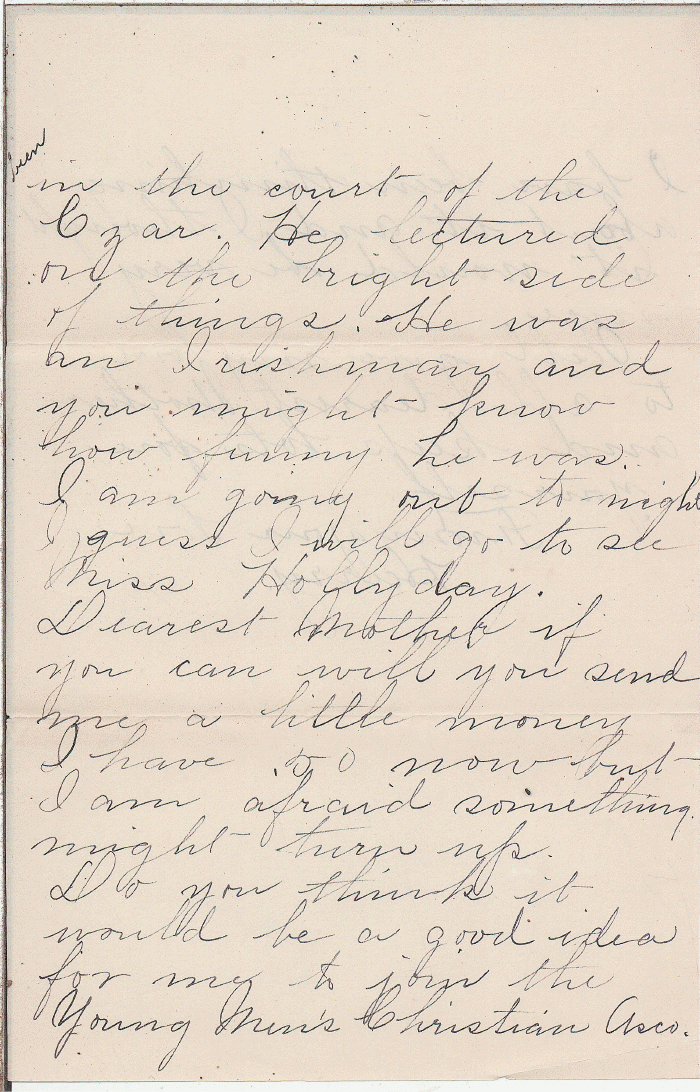 even
in the court of the
Czar. He lectured
on the bright side
of things. He was
an Irishman and
you might know
how funny he was.
I am going out to night
I guess I will go to see
Miss Hollyday.
Dearest Mother if
you can will you send
me a little money
I have .50 now but
I am afraid something
might turn up.
Do you think it
would be a good idea
for me to join the
Young Men's Christian Asco.